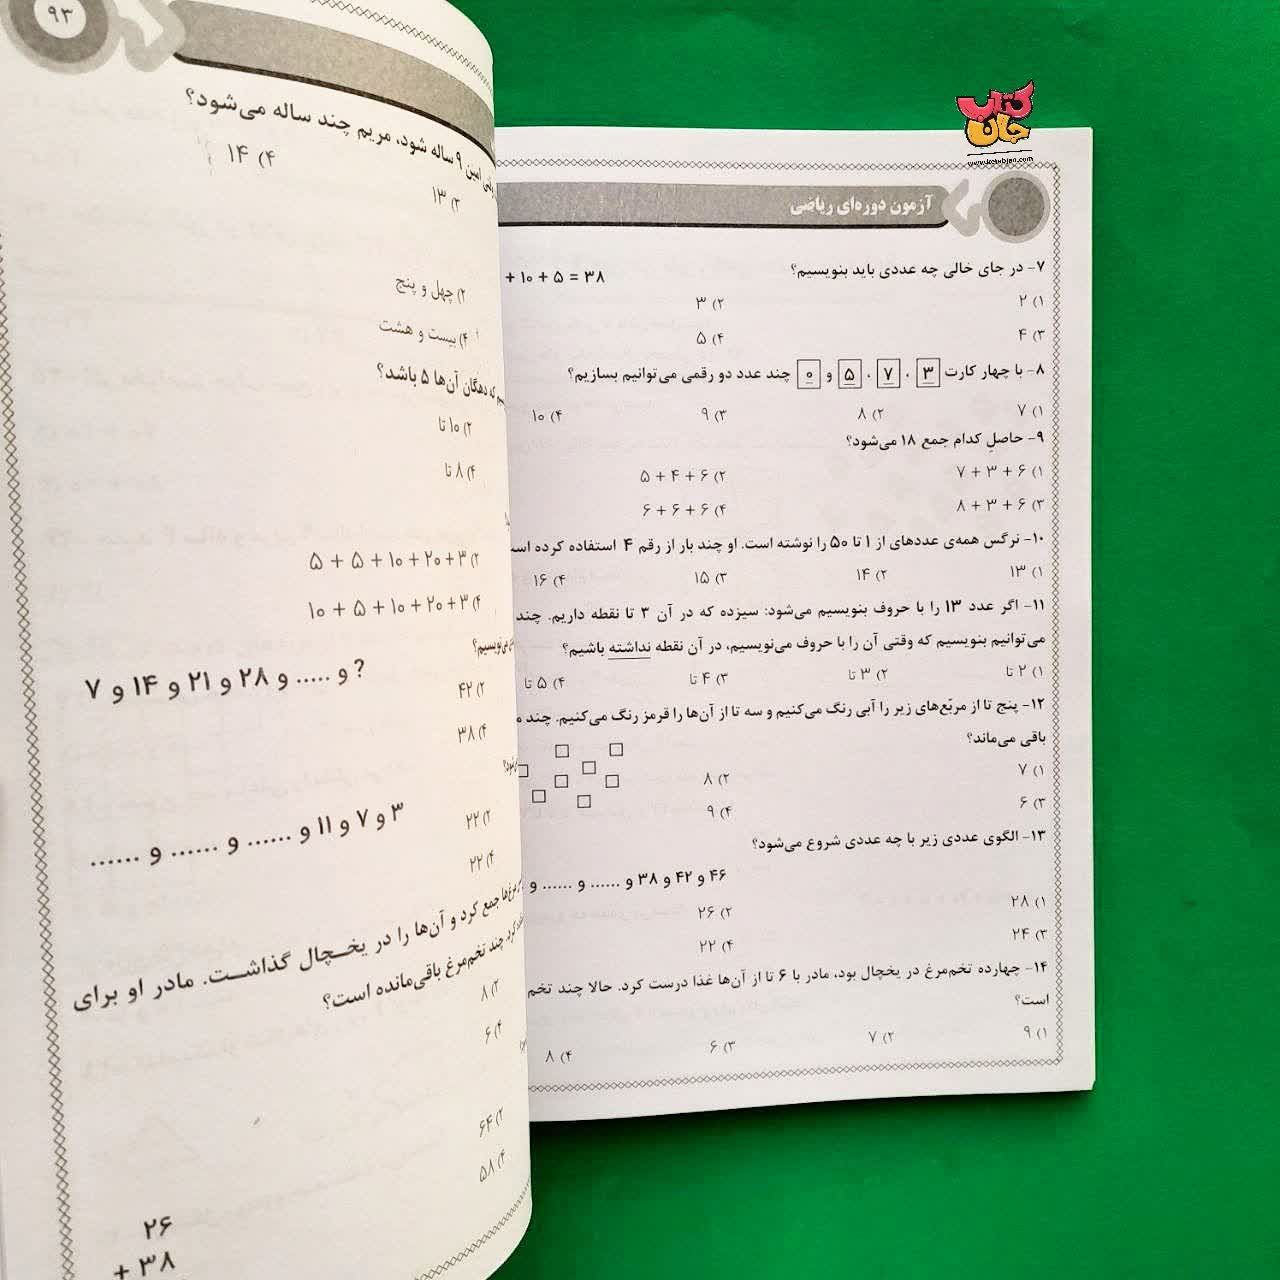 کتاب جان
www.ketabjan.com
آزمون دوره‌ای ریاضی
۷- در جای خالی چه عددی باید بنویسیم؟ + ۱۰ + ۵ = ۳۸
۱) ۲ ۲) ۳
۳) ۴ ۴) ۵
۸- با چهار کارت ۳ ، ۷ ، ۵ و ۰ چند عدد دو رقمی می‌توانیم بسازیم؟
۱) ۷ ۲) ۸ ۳) ۹ ۴) ۱۰
۹- حاصلِ کدام جمع ۱۸ می‌شود؟
۱) ۷ + ۳ + ۶ ۲) ۵ + ۴ + ۶
۳) ۸ + ۳ + ۶ ۴) ۶ + ۶ + ۶
۱۰- نرگس همه‌ی عددهای از ۱ تا ۵۰ را نوشته است. او چند بار از رقم ۴ استفاده کرده است
۱) ۱۳ ۲) ۱۴ ۳) ۱۵ ۴) ۱۶
۱۱- اگر عدد ۱۳ را با حروف بنویسیم می‌شود: سیزده که در آن ۳ تا نقطه داریم. چند
می‌توانیم بنویسیم که وقتی آن را با حروف می‌نویسیم، در آن نقطه نداشته باشیم؟
۱) ۲ تا ۲) ۳ تا ۳) ۴ تا ۴) ۵ تا
۱۲- پنج تا از مربّع‌های زیر را آبی رنگ می‌کنیم و سه تا از آن‌ها را قرمز رنگ می‌کنیم. چند
باقی می‌ماند؟
۱) ۷ ۲) ۸
۳) ۶ ۴) ۹
۱۳- الگوی عددی زیر با چه عددی شروع می‌شود؟
۴۶ و ۴۲ و ۳۸ و ...... و ...... و
۱) ۲۸ ۲) ۲۶
۳) ۲۴ ۴) ۲۲
۱۴- چهارده تخم‌مرغ در یخچال بود، مادر با ۶ تا از آن‌ها غذا درست کرد. حالا چند تخم
است؟
۱) ۹ ۲) ۷ ۳) ۶ ۴) ۸
۹۳
امین ۹ ساله شود، مریم چند ساله می‌شود؟
۲) ۱۳ ۴) ۱۴
۲) چهل و پنج
۴) بیست و هشت
که دهگان آن‌ها ۵ باشد؟
۲) ۱۰ تا
۴) ۸ تا
۲) ۳ + ۲۰ + ۱۰ + ۵ + ۵
۴) ۳ + ۲۰ + ۱۰ + ۵ + ۱۰
می‌نویسیم؟
۷ و ۱۴ و ۲۱ و ۲۸ و ..... و ?
۲) ۴۲
۴) ۳۸
۳ و ۷ و ۱۱ و ...... و ...... و ......
۲) ۲۲
۴) ۲۲
مرغ‌ها جمع کرد و آن‌ها را در یخـچال گذاشـت. مادر او برای
کرد. چند تخم‌مرغ باقی‌مانده است؟
۲) ۸
۴) ۶
۲) ۶۴
۴) ۵۸
۲۶
+ ۳۸